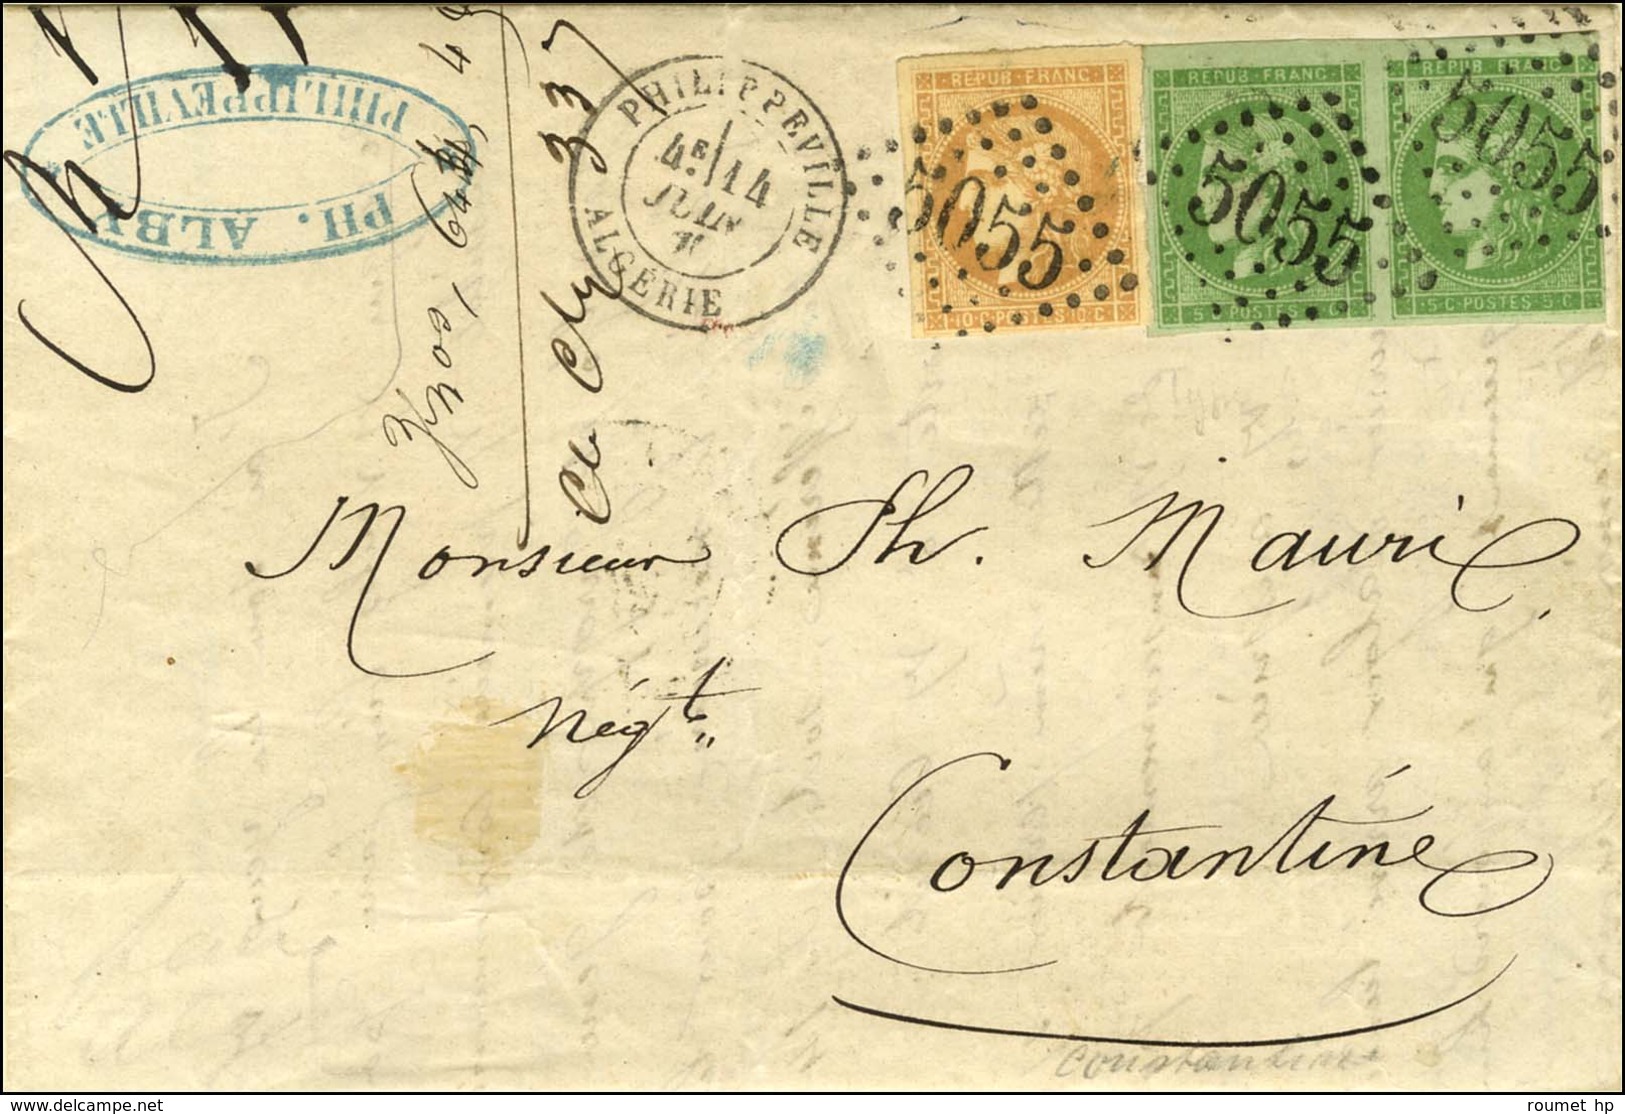 PH. ALBY
PHILIPPEVILLE
PHILIPPEVILLE
4E/14
JUIN
ALGÉRIE
REPUB·FRANC·
10·C·POSTES·10·C·
REPUB·FRANC·
REPUB·FRANC·
5·C·POSTES·5·C·
5055
5055
5055
337
Monsieur Ph. Mauri
Négt.
Constantine
Constantine
delcampe.net
roumet hp